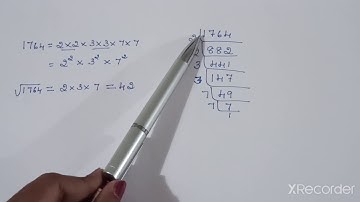 1764 = 2 × 2 × 3 × 3 × 7 × 7
= 2² × 3² × 7²
√1764 = 2 × 3 × 7 = 42
2 1764
882
3 441
3 147
7 49
7 7
1
XRecorder